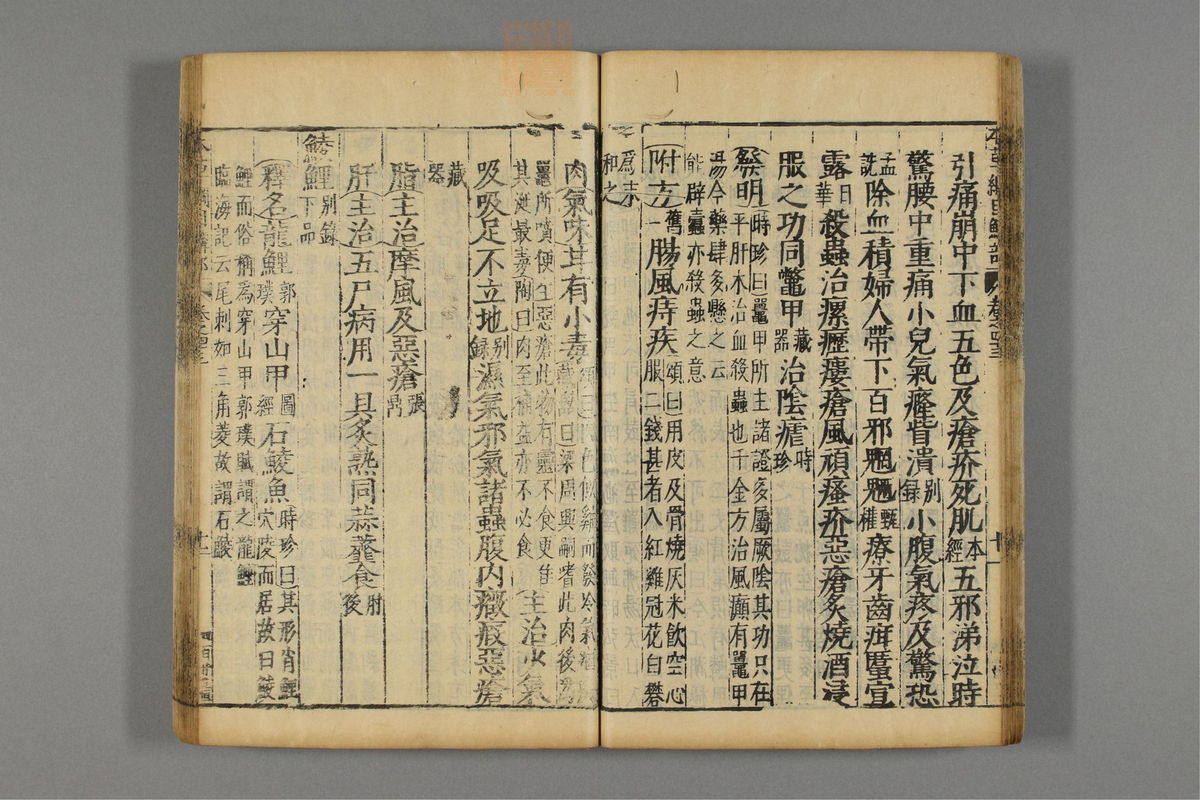 引痛崩中下血五色及瘡疥死肌本經五邪涕泣時
驚腰中重痛小兒氣癃眥潰别録小腹氣疼及驚恐
孟詵除血積婦人帶下百邪魍魎甄權療牙齒疳䘌宣
露日華殺蟲治瘰癧瘻瘡風頑瘙疥惡瘡炙燒酒浸
服之功同鼈甲藏器治陰瘧時珍
發明時珍曰鼉甲所主諸證多屬厥陰其功只在
平肝木治血殺蟲也千金方治風癲有鼉甲
湯今藥肆多懸之云
能辟蠹亦殺蟲之意
附方舊一腸風痔疾頌曰用皮及骨燒灰米飲空心
服二錢甚者入紅雞冠花白礬
爲末
和之
肉氣味甘有小毒
鼉所噴便生惡瘡此物有靈不食更佳
其涎最毒陶曰肉至補益亦不必食
主治少氣
吸吸足不立地别録濕氣邪氣諸蟲腹内癥瘕惡瘡
藏器
脂主治摩風及惡瘡張鼎
肝主治五尸病用一具炙熟同蒜虀食肘後
鯪鯉别錄下品
釋名龍鯉郭璞穿山甲圖經石鯪魚時珍曰其形肖鯉
穴陵而居故曰鯪
鯉而俗稱爲穿山甲郭璞賦謂之龍鯉
臨海記云尾刺如三角菱故謂石鯪